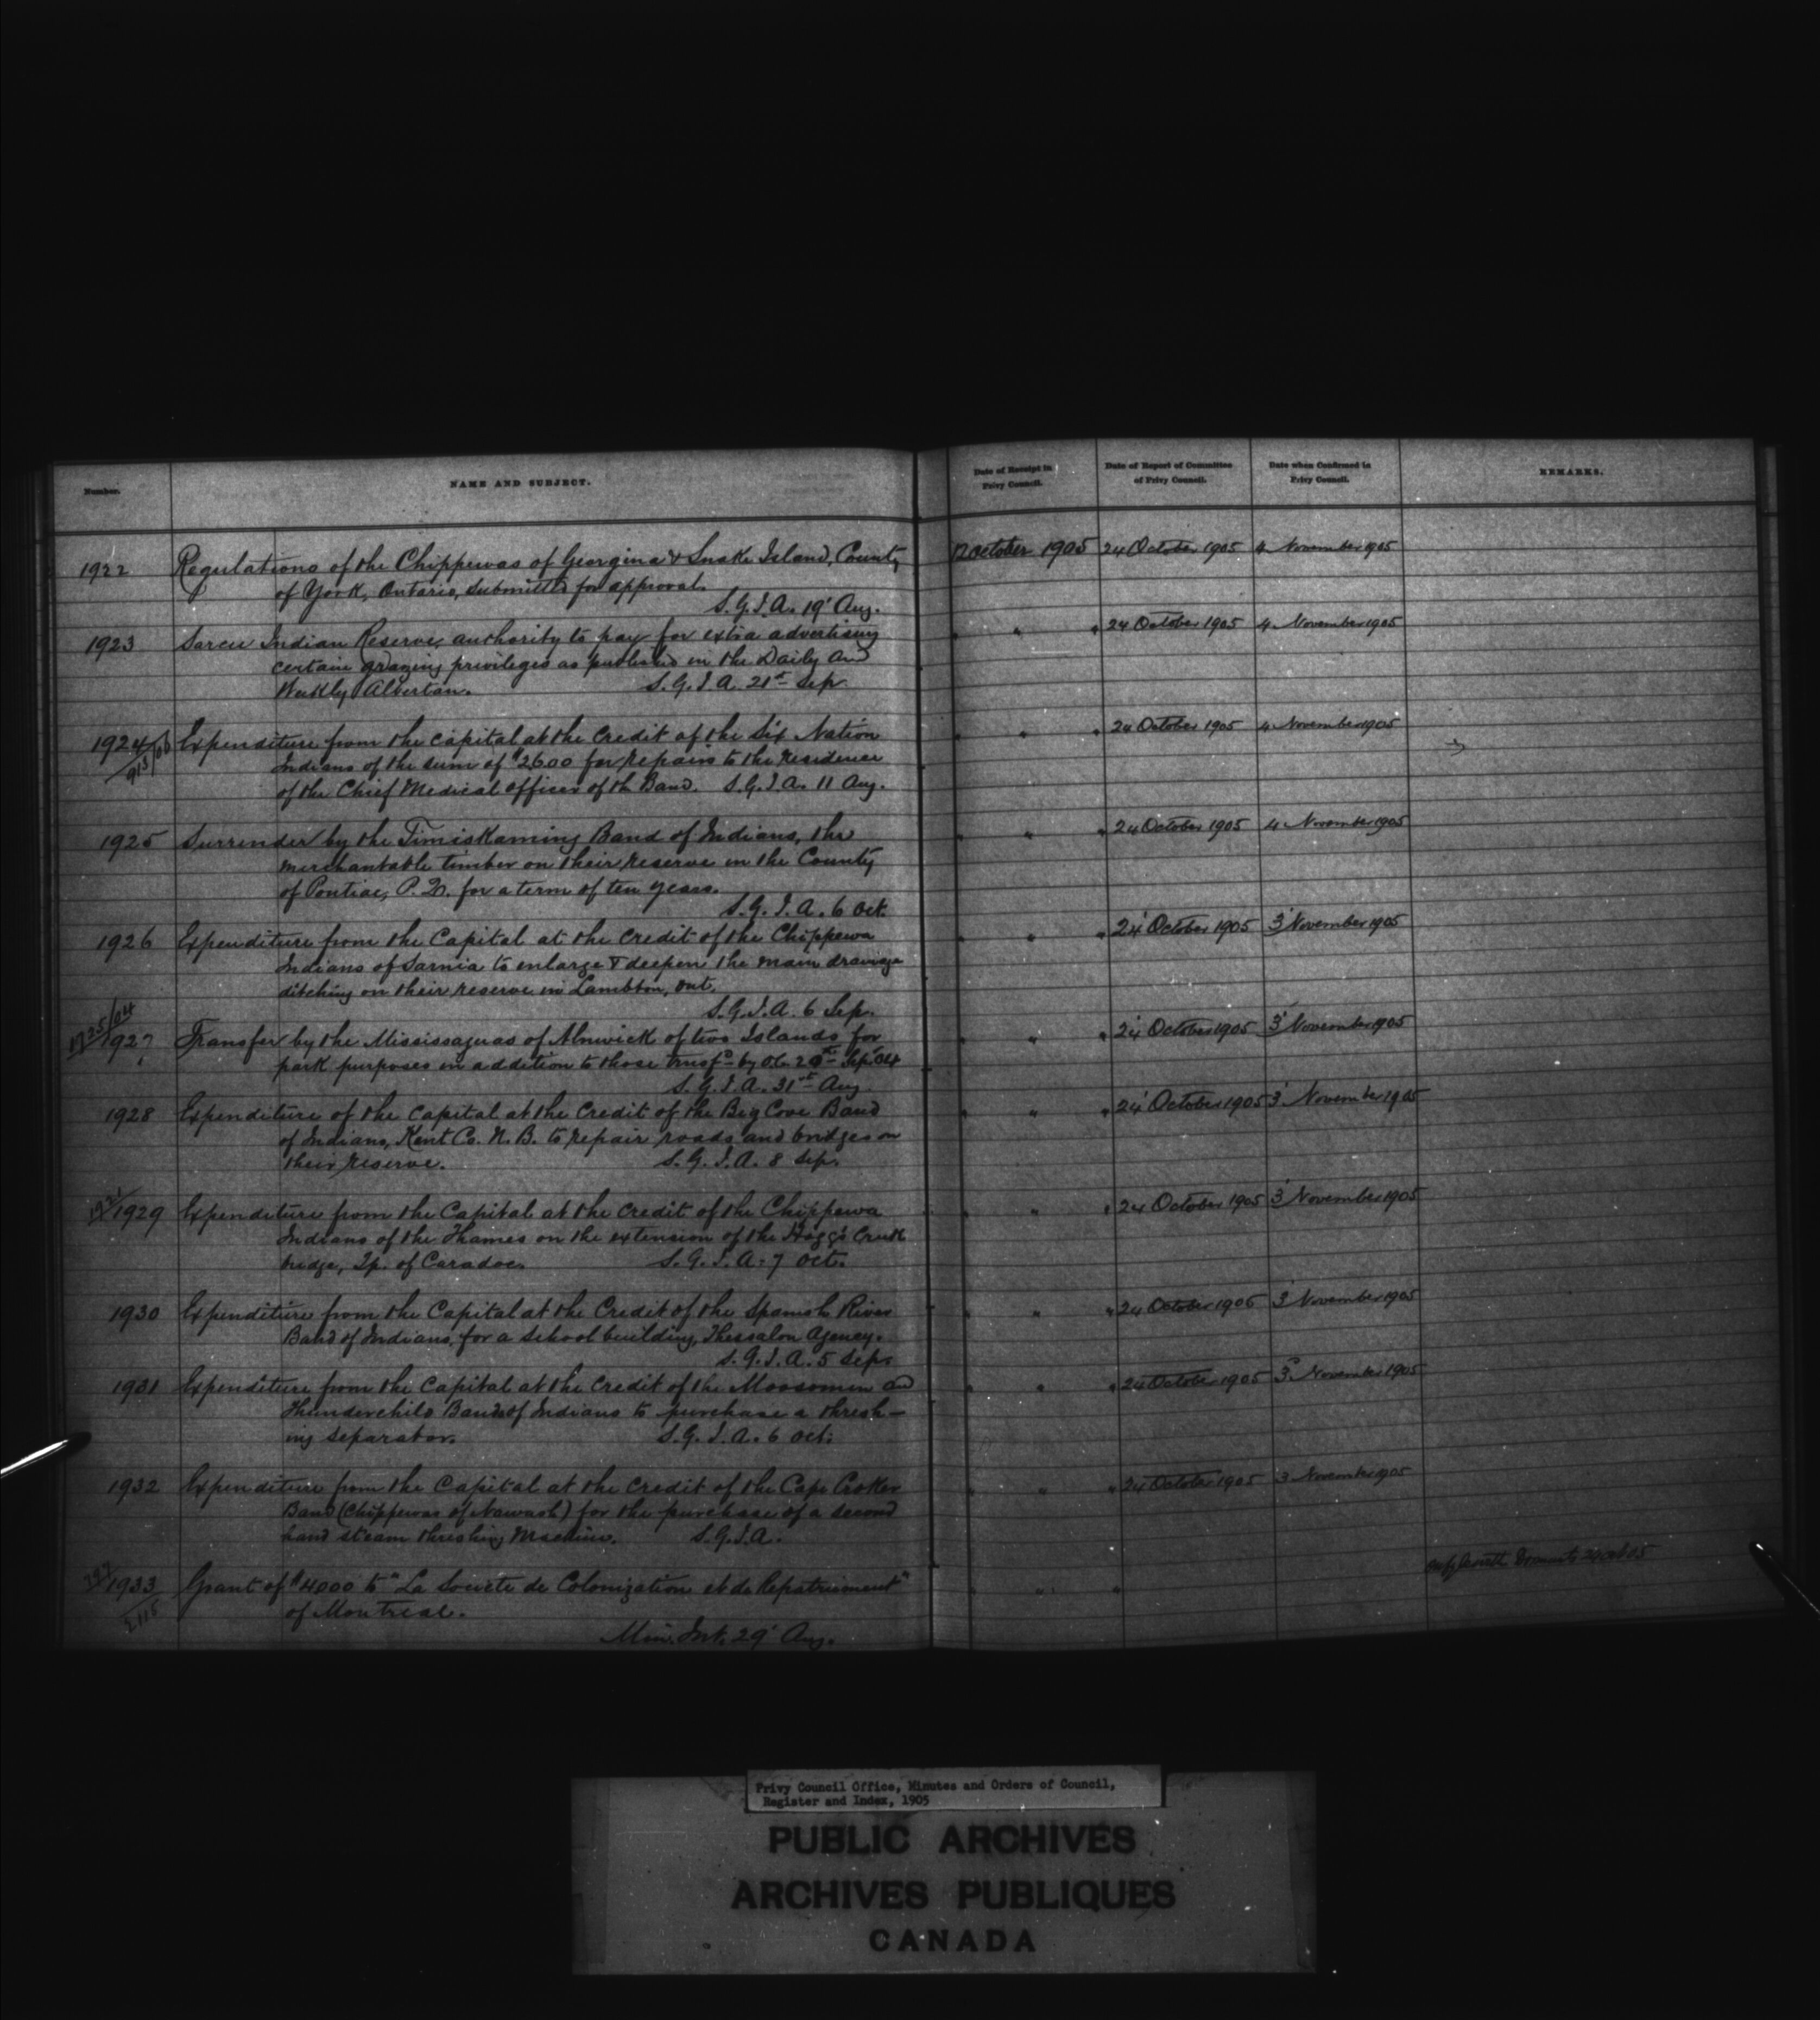 Number.
NAME AND SUBJECT.
Date of Receipt in Privy Council.
Date of Report of Committee of Privy Council.
Date when Confirmed in Privy Council.
REMARKS.
1922 Regulations of the Chippewas of Georgina & Snake Island, County 12 October 1905 24 October 1905 4 November 1905
of York, Ontario, submitted for approval.
S.G.I.A. 19' Aug.
1923 Sarcee Indian Reserve, authority to pay for extra advertising " " " 24 October 1905 4 November 1905
certain grazing privileges as published in the Daily and
Weekly Albertan. S.G.I.A. 21st Sep.
1924 Expenditure from the capital at the credit of the Six Nation " " " 24 October 1905 4 November 1905
913/06 Indians of the sum of $2600 for repairs to the residence
of the Chief Medical Officer of th Band. S.G.I.A. 11 Aug.
1925 Surrender by the Timiskaming Band of Indians, the " " " 24 October 1905 4 November 1905
merchantable timber on their reserve in the County
of Pontiac, P.Q. for a term of ten years.
S.G.I.A. 6 Oct.
1926 Expenditure from the Capital at the credit of the Chippewa " " " 24' October 1905 3' November 1905
Indians of Sarnia to enlarge & deepen the main drainage
ditching on their reserve in Lambton, Ont.
S.G.I.A. 6 Sep.
1725/04
1927 Transfer by the Mississaguas of Alnwick of two Islands for " " " 24' October 1905 3' November 1905
park purposes in addition to those transfd by O.C. 20th Sep '04
S.G.I.A. 31st Aug.
1928 Expenditure of the capital at the credit of the Big Cove Band " " " 24' October 1905 3' November 1905
of Indians, Kent Co. N.B. to repair roads and bridges on
their reserve. S.G.I.A. 8 Sep.
1929 Expenditure from the Capital at the credit of the Chippewa " " " 24 October 1905 3' November 1905
Indians of the Thames on the extension of the Hogg's Creek
bridge, Tp. of Caradoc. S.G.I.A. 7 Oct.
1930 Expenditure from the Capital at the Credit of the Spanish River " " " 24 October 1905 3' November 1905
Band of Indians, for a School building, Thessalon Agency.
S.G.I.A. 5 Sep.
1931 Expenditure from the Capital at the credit of the Moosomin and " " " 24 October 1905 3 November 1905
Thunderchild Bands of Indians to purchase a thresh-
ing separator. S.G.I.A. 6 Oct.
1932 Expenditure from the Capital at the credit of the Cape Croker " " " 24 October 1905 3 November 1905
Band (Chippewas of Nawash) for the purchase of a second
hand steam threshing machine. S.G.I.A.
1933 Grant of $4000 to "La Societe de Colonization et de Repatriement" " " "
2115 of Montreal.
Min. Int. 29' Aug.
Privy Council Office, Minutes and Orders of Council,
Register and Index, 1905
PUBLIC ARCHIVES
ARCHIVES PUBLIQUES
CANADA